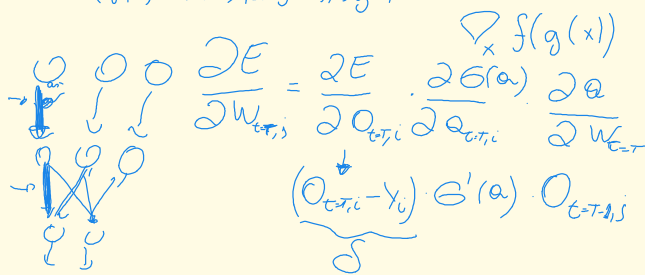 ∇ₓ f(g(x))
∂E/∂W_{t=T,j} = ∂E/∂O_{t=T,i} · ∂σ(a)/∂a_{t=T,i} · ∂a/∂W_{t=T}
(O_{t=T,i} - y_i) · σ'(a) · O_{t=T-1,j}
δ